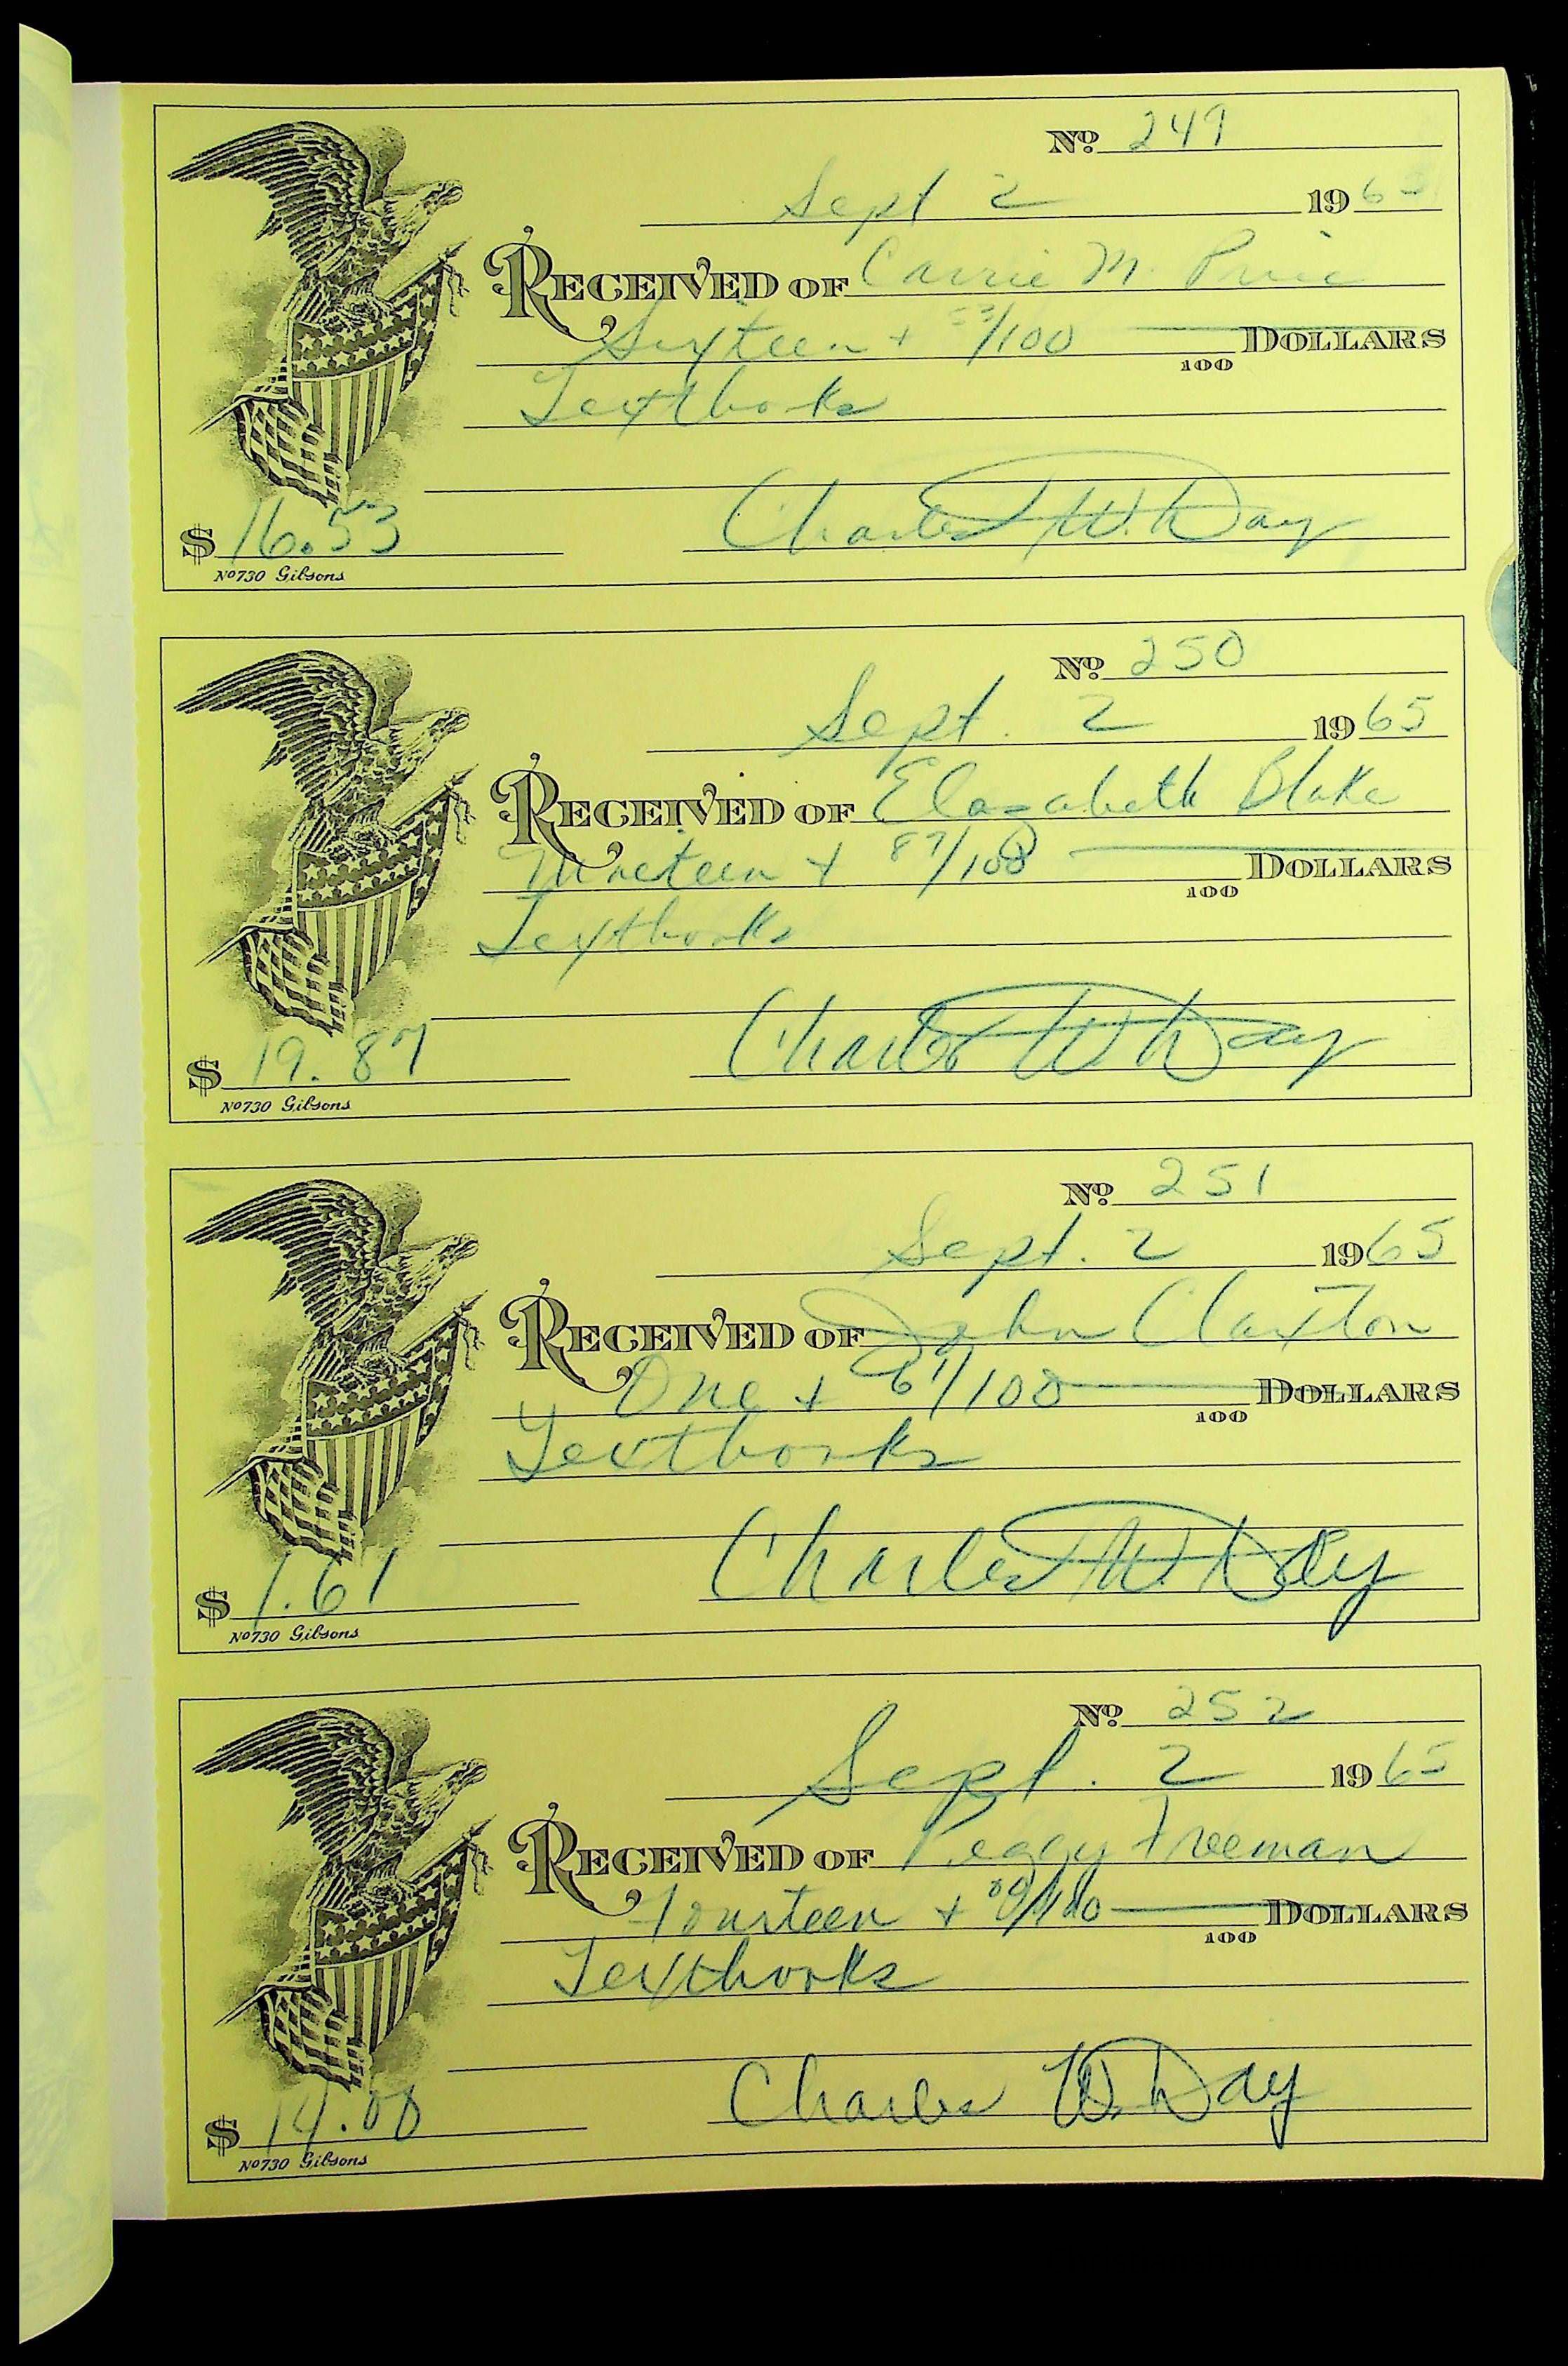 No. 249
Sept 2 1965
RECEIVED OF Carrie M. Price
Sixteen + 53/100 DOLLARS
100
Textbooks
Charles W. Day
$ 16.53
No 730 Gibsons
No. 250
Sept. 2 1965
RECEIVED OF Elazabeth Blake
Nineteen + 87/100 DOLLARS
100
Textbooks
Charles W Day
$ 19.87
No 730 Gibsons
No. 251
Sept. 2 1965
RECEIVED OF John Claxton
One + 61/100 DOLLARS
100
Textbooks
Charles W. Day
$ 1.61
No 730 Gibsons
No. 252
Sept. 2 1965
RECEIVED OF Peggy Freeman
Fourteen + 00/100 DOLLARS
100
Textbooks
Charles W. Day
$ 14.00
No 730 Gibsons